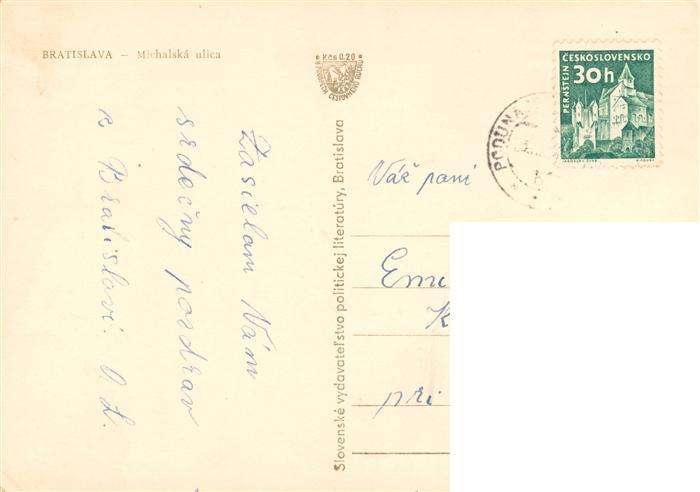 BRATISLAVA – Michalská ulica
Kčs 0.20
Zasielam Vám
srdečný pozdrav
z Bratislavi. O. L.
Slovenské vydavateľstvo politickej literatúry, Bratislava
ČESKOSLOVENSKO
PERNŠTEJN
30h
Váž paní
Em
K
pri